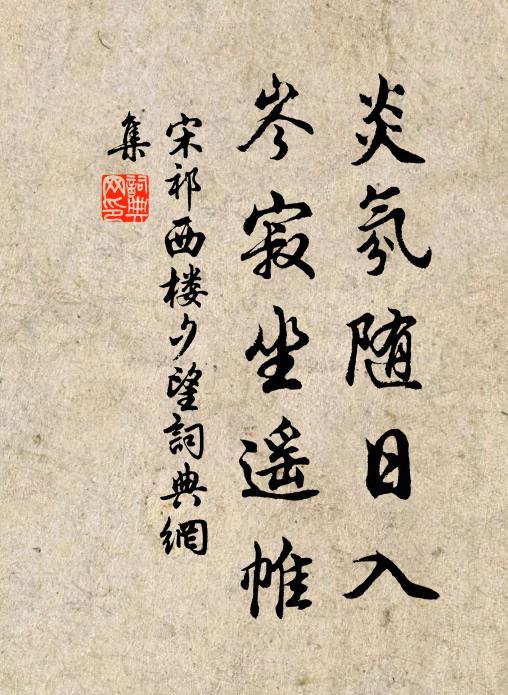 炎氛随日入
岑寂坐遥帷
宋祁西楼夕望詞典網
集
詞典网印